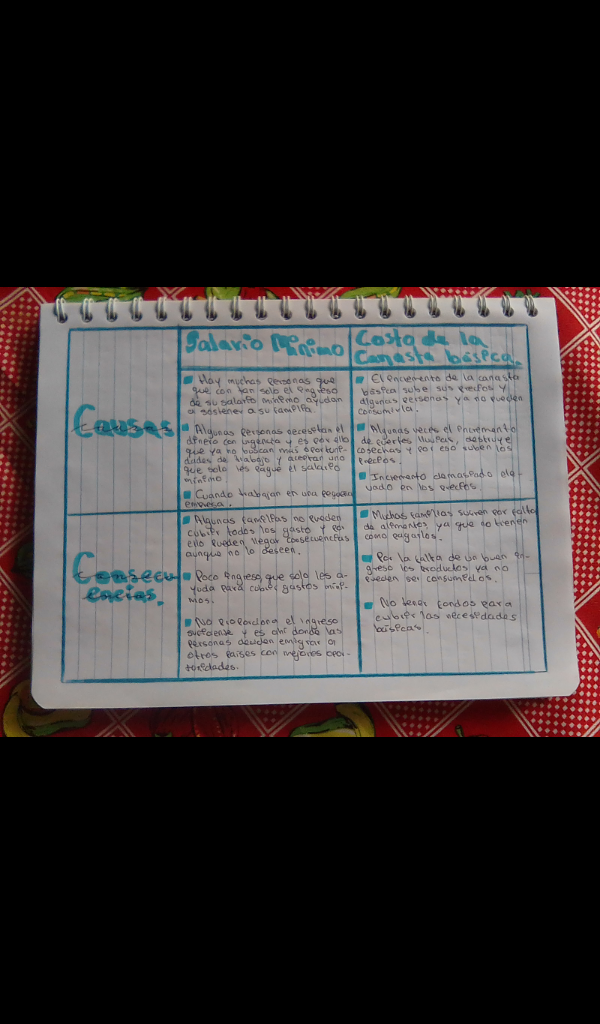 Salario Mínimo
Costo de la
Canasta básica.
Causas
Hay muchas personas que
que con tan solo el ingreso
de su salario mínimo ayudan
a sostener a su familia.
Algunas personas necesitan el
dinero con urgencia y es por ello
que ya no buscan más oportuni-
dades de trabajo y aceptan uno
que solo les pague el salario
mínimo
Cuando trabajan en una pequeña
empresa.
El incremento de la canasta
básica sube sus precios y
algunas personas ya no pueden
consumirla.
Algunas veces el incremento
de fuertes lluvias, destruye
cosechas y por eso suben los
precios.
Incremento demasiado ele-
vado en los precios.
Consecu
encias.
Algunas familias no pueden
cubrir todos los gasto y por
ello pueden llegar consecuencias
aunque no lo deseen.
Poco ingreso, que solo les a-
yuda para cubrir gastos míni-
mos.
No proporciona el ingreso
suficiense y es ahí donde las
personas deciden emigrar a
otros países con mejores opor-
tunidades.
Muchas familias sufren por falta
de alimentos, ya que no tienen
como pagarlos.
Por la falta de un buen in-
greso los productos ya no
pueden ser consumidos.
No tener fondos para
cubrir las necesidades
básicas.